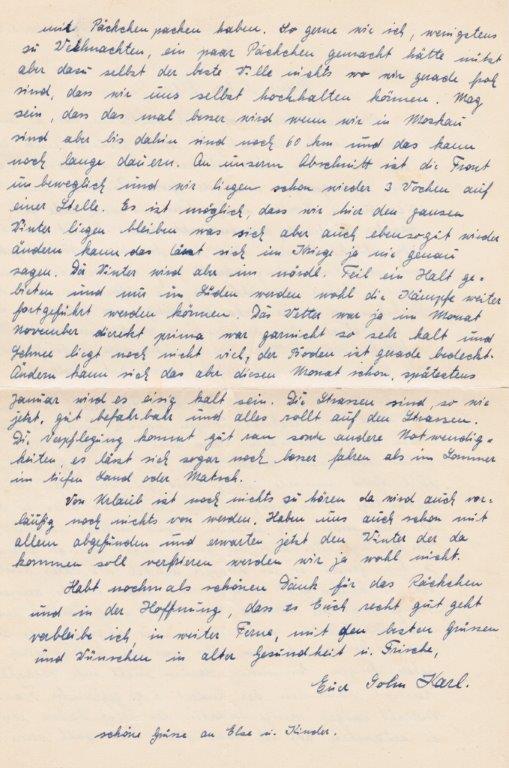 mit Päckchen packen haben. So gerne wie ich, wenigstens
zu Weihnachten, ein paar Päckchen gemacht hätte nützt
aber dazu selbst der beste Wille nichts wo wir gerade froh
sind, das wir uns selbst hochhalten können. Mag
sein, dass das mal besser wird wenn wir in Moskau
sind aber bis dahin sind noch 60 km und das kann
noch lange dauern. An unserm Abschnitt ist die Front
unbeweglich und wir liegen schon wieder 3 Wochen auf
einer Stelle. Es ist möglich, dass wir hier den ganzen
Winter liegen bleiben was sich aber auch ebensogut wieder
ändern kann das lässt sich im Kriege ja nie genau
sagen. Der Winter wird aber im nördl. Teil ein Halt ge-
bieten und nur im Süden werden wohl die Kämpfe weiter
fortgeführt werden können. Das Wetter war ja im Monat
November direkt prima war garnicht so sehr kalt und
Schnee liegt noch nicht viel, der Boden ist gerade bedeckt.
Ändern kann sich das aber diesen Monat schon, spätestens
Januar wird es eisig kalt sein. Die Strassen sind so wie
jetzt, gut befahrbar und alles rollt auf den Strassen.
Die Verpflegung kommt gut ran sowie andere Notwendig-
keiten, es lässt sich sogar noch besser fahren als im Sommer
im tiefen Sand oder Matsch.
Von Urlaub ist noch nichts zu hören da wird auch vor-
läufig noch nichts von werden. Haben uns auch schon mit
allem abgefunden und erwarten jetzt den Winter der da
kommen soll verfrieren werden wir ja wohl nicht.
Habt nochmals schönen Dank für das Päckchen
und in der Hoffnung, dass es Euch recht gut geht
verbleibe ich, in weiter Ferne, mit den besten Grüssen
und Wünschen in alter Gesundheit u. Frische,
Euer Sohn Karl.
schöne Grüsse an Else u. Kinder.